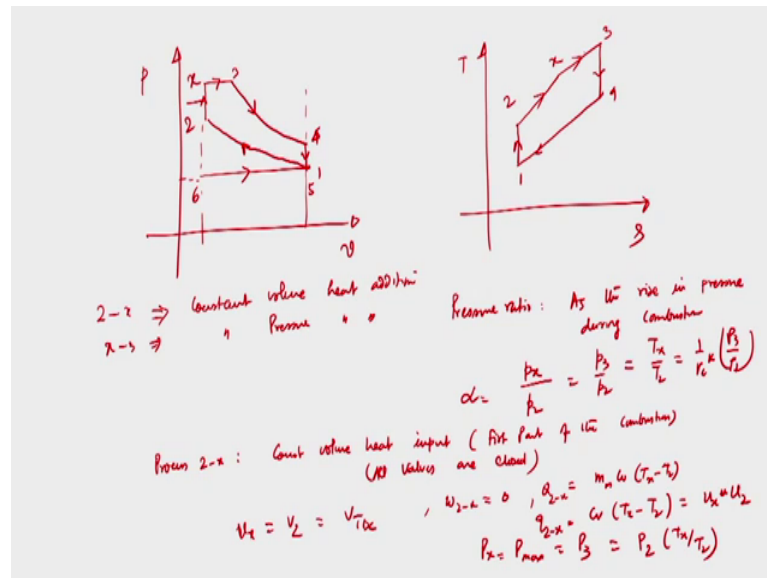 P
x 3
2
4
1
6
5
v
T
3
x
2
4
1
S
2-x ⇒ Constant volume heat addition
x-3 ⇒ " Pressure " "
Pressure ratio : As the rise in pressure
during combustion
α = px/p2 = p3/p2 = Tx/T2 = 1/rc × (P3/P2)
Process 2-x : Const volume heat input (First Part of the combustion)
(All valves are closed)
Vx = V2 = VTDC , W2-x = 0 , Q2-x = mm cv (Tx-T2)
q2-x = cv (Tx-T2) = ux - u2
Px = Pmax = P3 = P2 (Tx/T2)